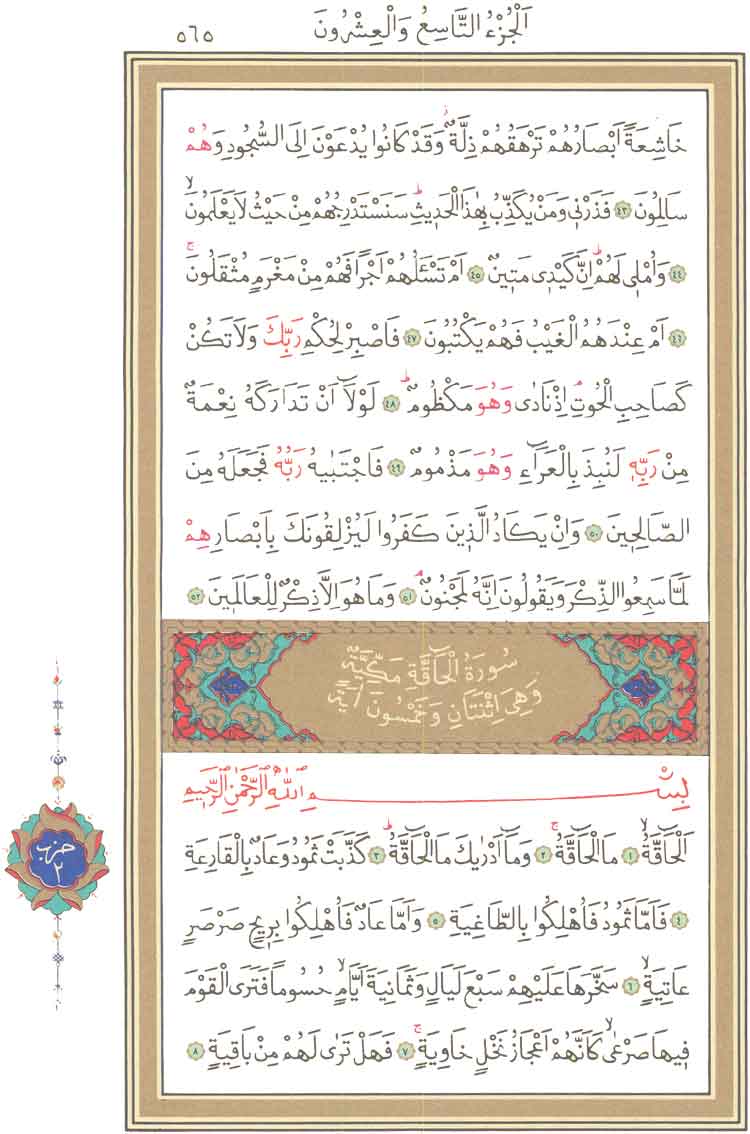 اَلْجُزْءُ التَّاسِعُ وَالْعِشْرُونَ ٥٦٥
خَاشِعَةً اَبْصَارُهُمْ تَرْهَقُهُمْ ذِلَّةٌۜ وَقَدْ كَانُوا يُدْعَوْنَ اِلَى السُّجُودِ وَهُمْ
سَالِمُونَ ٤٣ فَذَرْنٖي وَمَنْ يُكَذِّبُ بِهٰذَا الْحَدٖيثِۜ سَنَسْتَدْرِجُهُمْ مِنْ حَيْثُ لَا يَعْلَمُونَۙ
٤٤ وَاُمْلٖي لَهُمْۜ اِنَّ كَيْدٖي مَتٖينٌ ٤٥ اَمْ تَسْـَٔلُهُمْ اَجْراً فَهُمْ مِنْ مَغْرَمٍ مُثْقَلُونَۚ
٤٦ اَمْ عِنْدَهُمُ الْغَيْبُ فَهُمْ يَكْتُبُونَ ٤٧ فَاصْبِرْ لِحُكْمِ رَبِّكَ وَلَا تَكُنْ
كَصَاحِبِ الْحُوتِۢ اِذْ نَادٰى وَهُوَ مَكْظُومٌۜ ٤٨ لَوْلَٓا اَنْ تَدَارَكَهُ نِعْمَةٌ
مِنْ رَبِّهٖ لَنُبِذَ بِالْعَرَٓاءِ وَهُوَ مَذْمُومٌ ٤٩ فَاجْتَبٰيهُ رَبُّهُ فَجَعَلَهُ مِنَ
الصَّالِحٖينَ ٥٠ وَاِنْ يَكَادُ الَّذٖينَ كَفَرُوا لَيُزْلِقُونَكَ بِاَبْصَارِهِمْ
لَمَّا سَمِعُوا الذِّكْرَ وَيَقُولُونَ اِنَّهُ لَمَجْنُونٌۢ ٥١ وَمَا هُوَ اِلَّا ذِكْرٌ لِلْعَالَمٖينَ ٥٢
سُورَةُ الْحَٓاقَّةِ مَكِّيَّةٌ
وَهِيَ اِثْنَتَانِ وَخَمْسُونَ اٰيَةً
بِسْمِ اللّٰهِ الرَّحْمٰنِ الرَّحٖيمِ
اَلْحَٓاقَّةُۙ ١ مَا الْحَٓاقَّةُۚ ٢ وَمَٓا اَدْرٰيكَ مَا الْحَٓاقَّةُۜ ٣ كَذَّبَتْ ثَمُودُ وَعَادٌ بِالْقَارِعَةِ
٤ فَاَمَّا ثَمُودُ فَاُهْلِكُوا بِالطَّاغِيَةِ ٥ وَاَمَّا عَادٌ فَاُهْلِكُوا بِرٖيحٍ صَرْصَرٍ
عَاتِيَةٍۙ ٦ سَخَّرَهَا عَلَيْهِمْ سَبْعَ لَيَالٍ وَثَمَانِيَةَ اَيَّامٍۙ حُسُوماً فَتَرَى الْقَوْمَ
فٖيهَا صَرْعٰىۙ كَاَنَّهُمْ اَعْجَازُ نَخْلٍ خَاوِيَةٍۚ ٧ فَهَلْ تَرٰى لَهُمْ مِنْ بَاقِيَةٍ ٨
حزب
٢